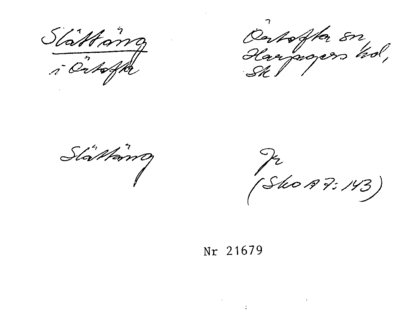 Slättäng
i Örtofta
Örtofta sn
Harjagers hd,
Sk
Slättäng
Jr
(Sko A 7: 143)
Nr 21679